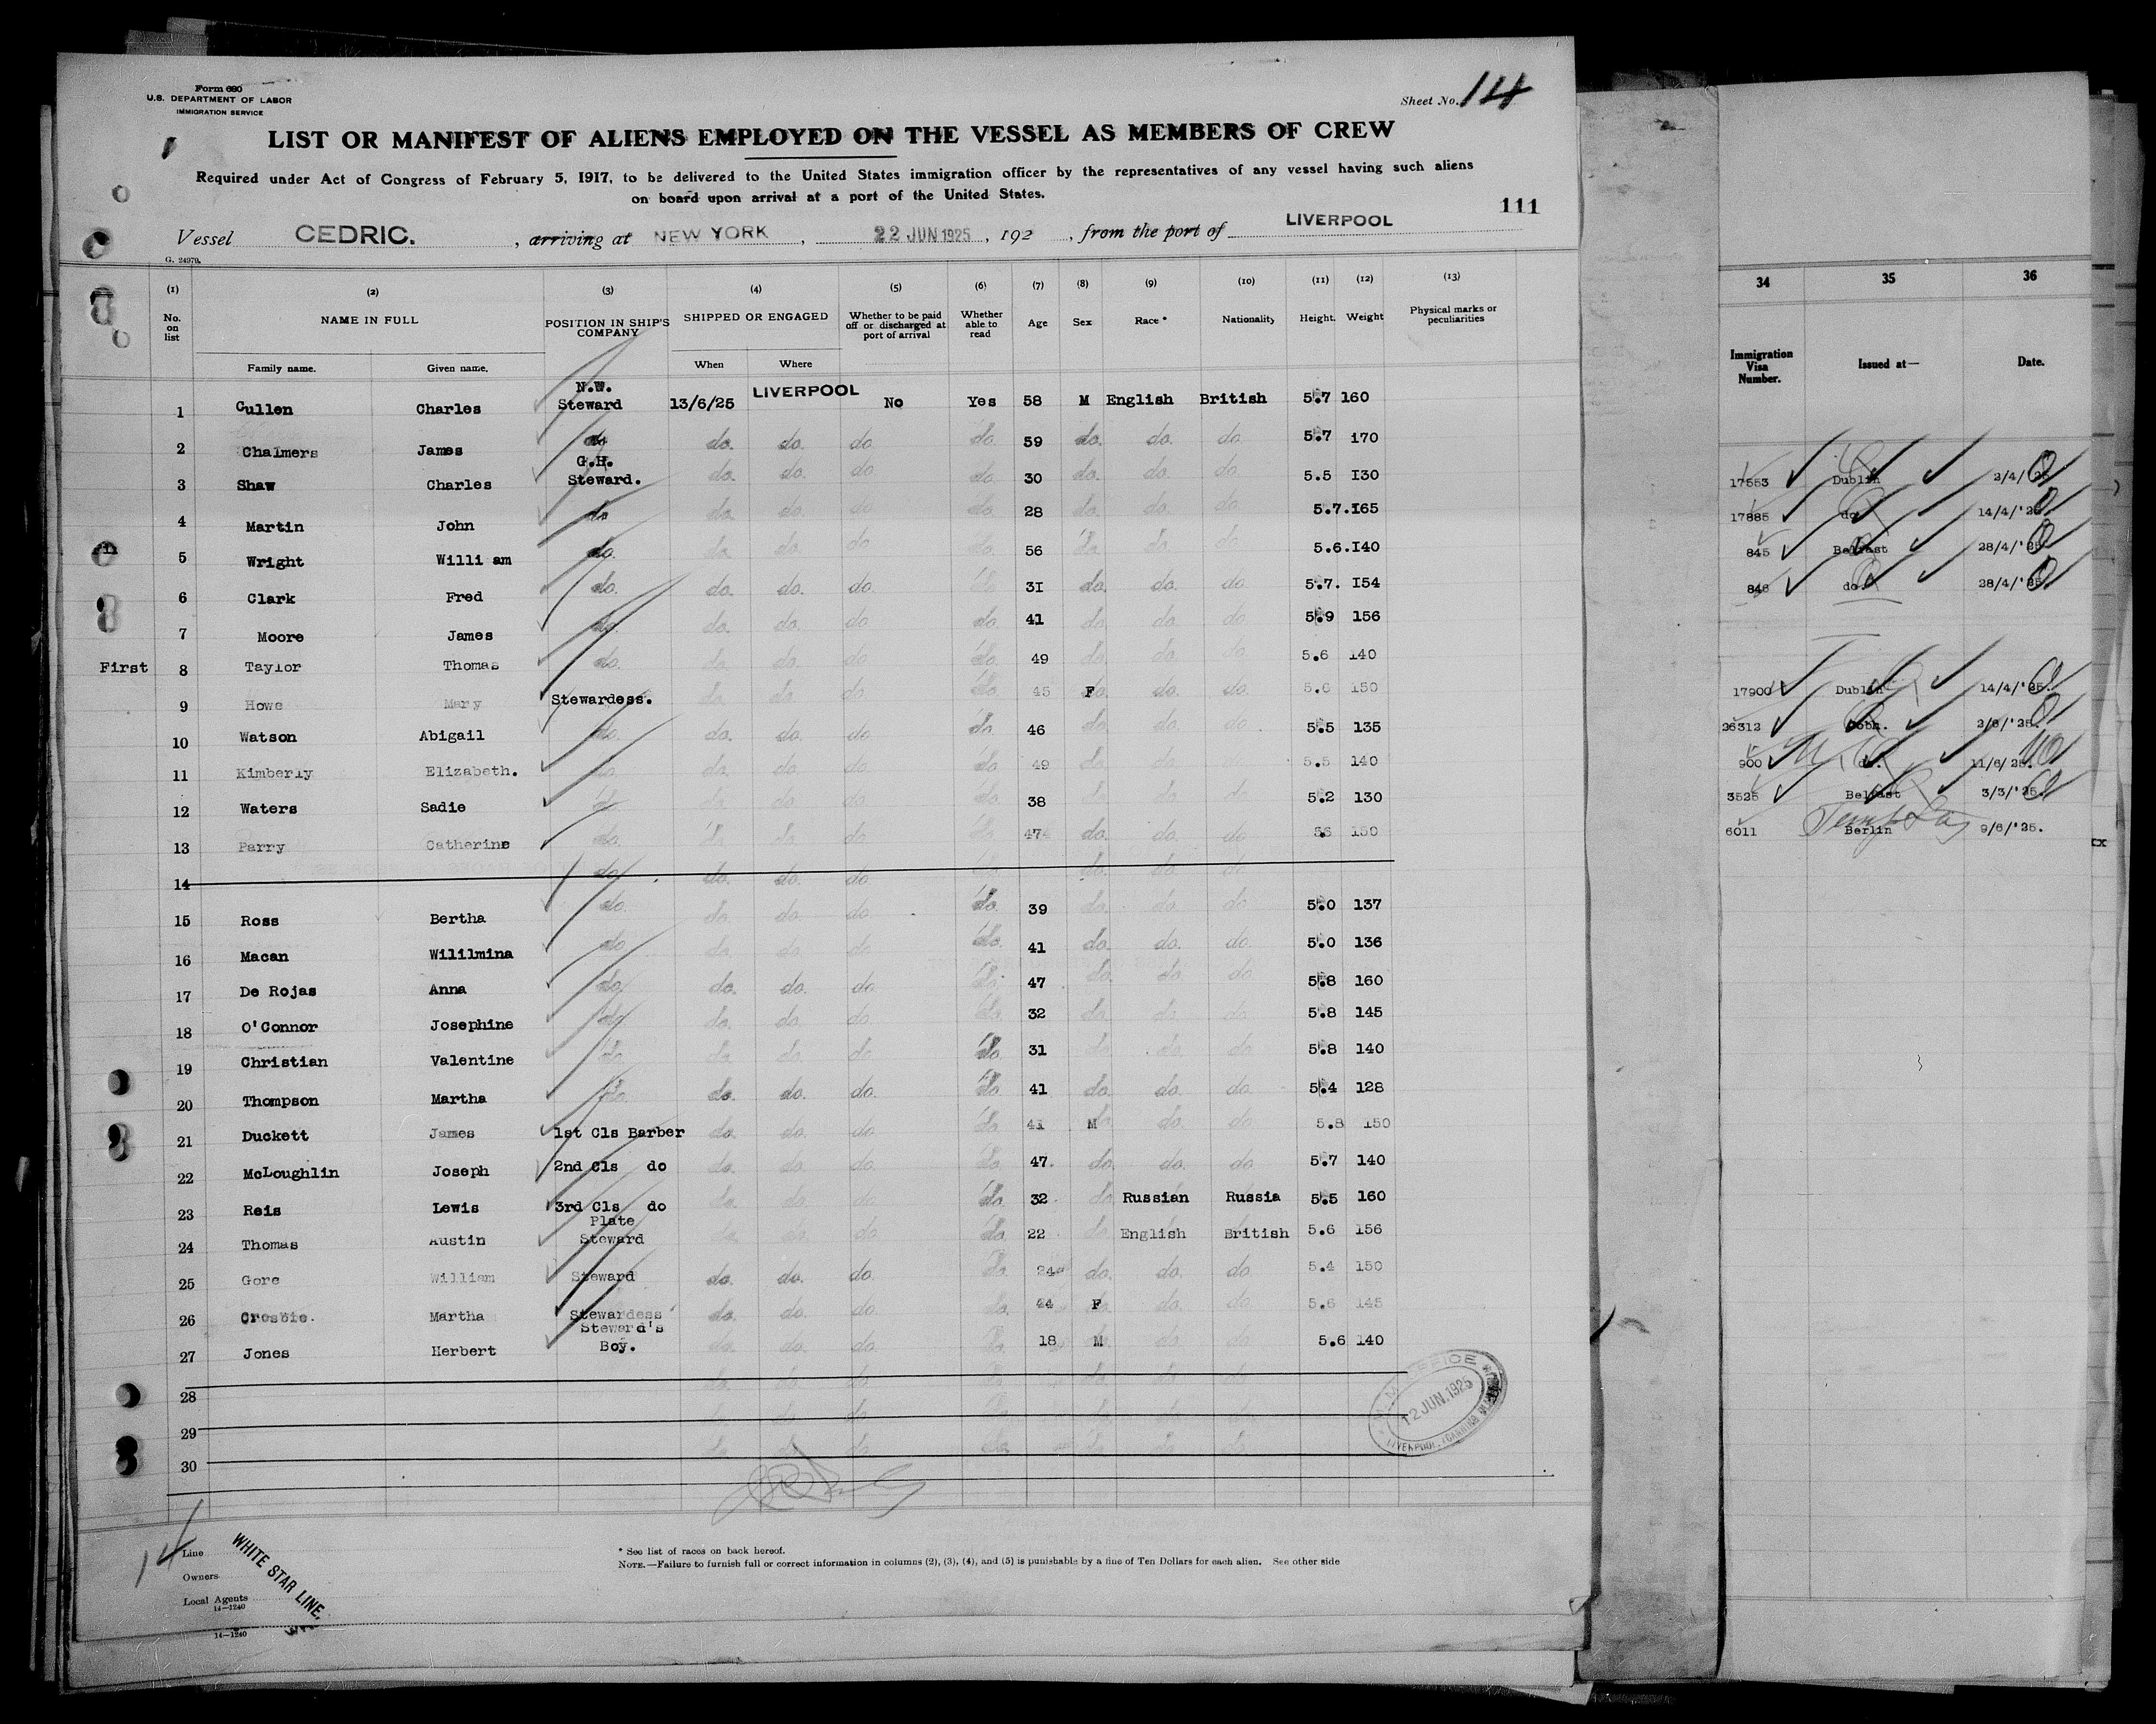 Form 680
U.S. DEPARTMENT OF LABOR
IMMIGRATION SERVICE
Sheet No. 14
LIST OR MANIFEST OF ALIENS EMPLOYED ON THE VESSEL AS MEMBERS OF CREW
Required under Act of Congress of February 5, 1917, to be delivered to the United States immigration officer by the representatives of any vessel having such aliens
on board upon arrival at a port of the United States.
111
Vessel CEDRIC. , arriving at NEW YORK , 22 JUN 1925 , 192 , from the port of LIVERPOOL
G. 24979.
(1) (2) (3) (4) (5) (6) (7) (8) (9) (10) (11) (12) (13)
No. on list NAME IN FULL POSITION IN SHIP'S COMPANY SHIPPED OR ENGAGED Whether to be paid off or discharged at port of arrival Whether able to read Age Sex Race * Nationality Height. Weight Physical marks or peculiarities
Family name. Given name. When Where
1 Cullen Charles N.W. Steward 13/6/25 LIVERPOOL No Yes 58 M English British 5.7 160
2 Chalmers James do do. do. do do. 59 do. do. do 5.7 170
3 Shaw Charles G.H. Steward. do. do. do do. 30 do. do. do 5.5 I30
4 Martin John do do. do. do do. 28 do. do. do 5.7. I65
5 Wright Willi am do. do. do. do do. 56 do. do. do 5.6. I40
6 Clark Fred do. do. do. do. 3I do. do. do 5.7. I54
7 Moore James do. do. do. do do. 41 do. do. do 5.9 156
First 8 Taylor Thomas do. do. do. do do. 49 do. do. do 5.6 140
9 Howe Mary Stewardess. do. do. do. do. 45 F do. do. 5.6 150
10 Watson Abigail do. do. do. do do. 46 do. do. do 5.5 135
11 Kimberly Elizabeth. do. do. do. do do. 49 do. do. 5.5 140
12 Waters Sadie do. do. do. do do. 38 do. do 5.2 130
13 Parry Catherine do. do. do. do do. 47 do. do. do 5.6 150
14 do do. do. do do. do. do
15 Ross Bertha do. do. do. do. do. 39 do. do. do 5.0 137
16 Macan Wililmina do do. do. do do. 41 do. do. do. 5.0 136
17 De Rojas Anna do do. do. do. do. 47 do. do. do 5.8 160
18 O'Connor Josephine do do. do. do do. 32 do. do. do 5.8 145
19 Christian Valentine do do. do. do do. 31 do. do. do 5.8 140
20 Thompson Martha do. do. do. do. do. 41 do. do. do. 5.4 128
21 Duckett James 1st Cls Barber do. do. do do. 41 M do. do 5.8 150
22 McLoughlin Joseph 2nd Cls do do. do. do. do. 47. do. do. do. 5.7 140
23 Reis Lewis 3rd Cls do do. do. do do. 32 do. Russian Russia 5.5 160
24 Thomas Austin Plate Steward do. do. do. do. 22 do. English British 5.6 156
25 Gore William Steward do. do. do. do. 24 do. do. do. 5.4 150
26 Crosbie. Martha Stewardess do. do. do. do. 44 F do. do. 5.6 145
27 Jones Herbert Steward's Boy. do. do. do. do. 18 M do. do. 5.6 140
28
29
30
12 JUN. 1925
LIVERPOOL
14
Line WHITE STAR LINE,
Owners
Local Agents
14—1240
14—1240
* See list of races on back hereof.
NOTE.—Failure to furnish full or correct information in columns (2), (3), (4), and (5) is punishable by a fine of Ten Dollars for each alien. See other side
34 35 36
Immigration Visa Number. Issued at— Date.
17553 Dublin 2/4/'25
17885 do 14/4/'25
845 Belfast 28/4/'25
846 do 28/4/'25
17900 Dublin 14/4/'25.
26312 Cobh. 2/6/'25.
900 do. 11/6/25.
3525 Belfast 3/3/'25.
6011 Berlin 9/6/'25.